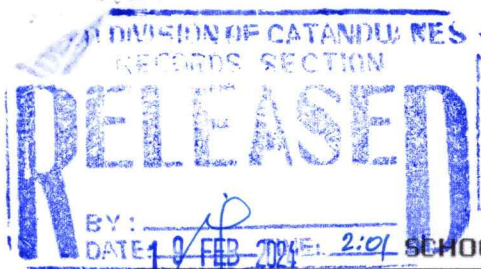 DIVISION OF CATANDUANES
RECORDS SECTION
RELEASED
BY:
DATE: 19 FEB 2024 2:01
SCHOO